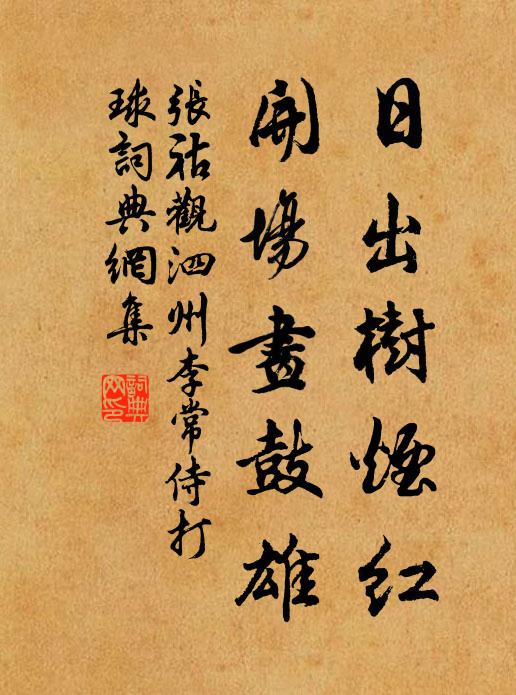 日出樹煙紅
開場畫鼓雄
張祜觀泗州李常侍打
球詞典網集
詞典
网印